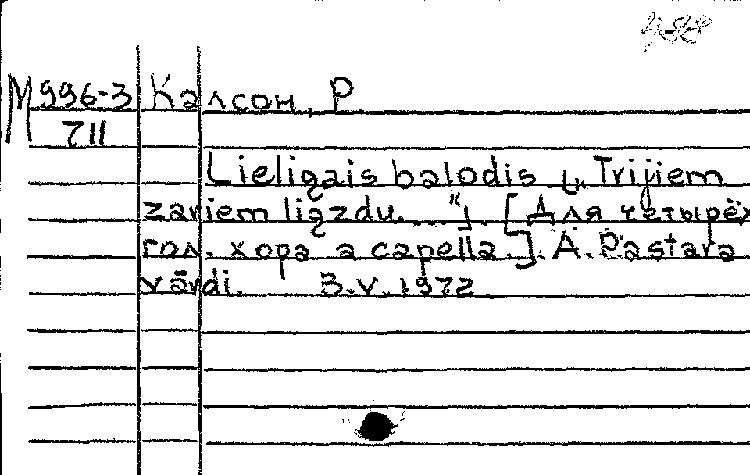 М 996-3 Калсон, Р.
711
Lieligais balodis („Trijiem
zariem ligzdu...."). [Для четырёх
гол. хора a capella.]. A. Pastara
vārdi. 3.V.1972